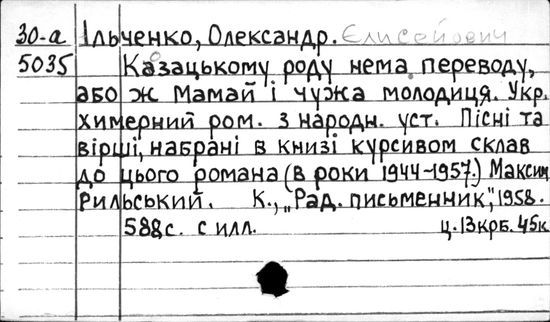 30-а Ільченко, Олександр. Єлисейович
5035 Казацькому роду нема переводу,
або ж Мамай і чужа молодиця. Укр.
химерний ром. з народн. уст. Пісні та
вірші, набрані в книзі курсивом склав
до цього романа (в роки 1944-1957.) Максим
Рильський. К., „Рад. письменник", 1958.
588 с. с илл. ц. 13 крб. 45 к